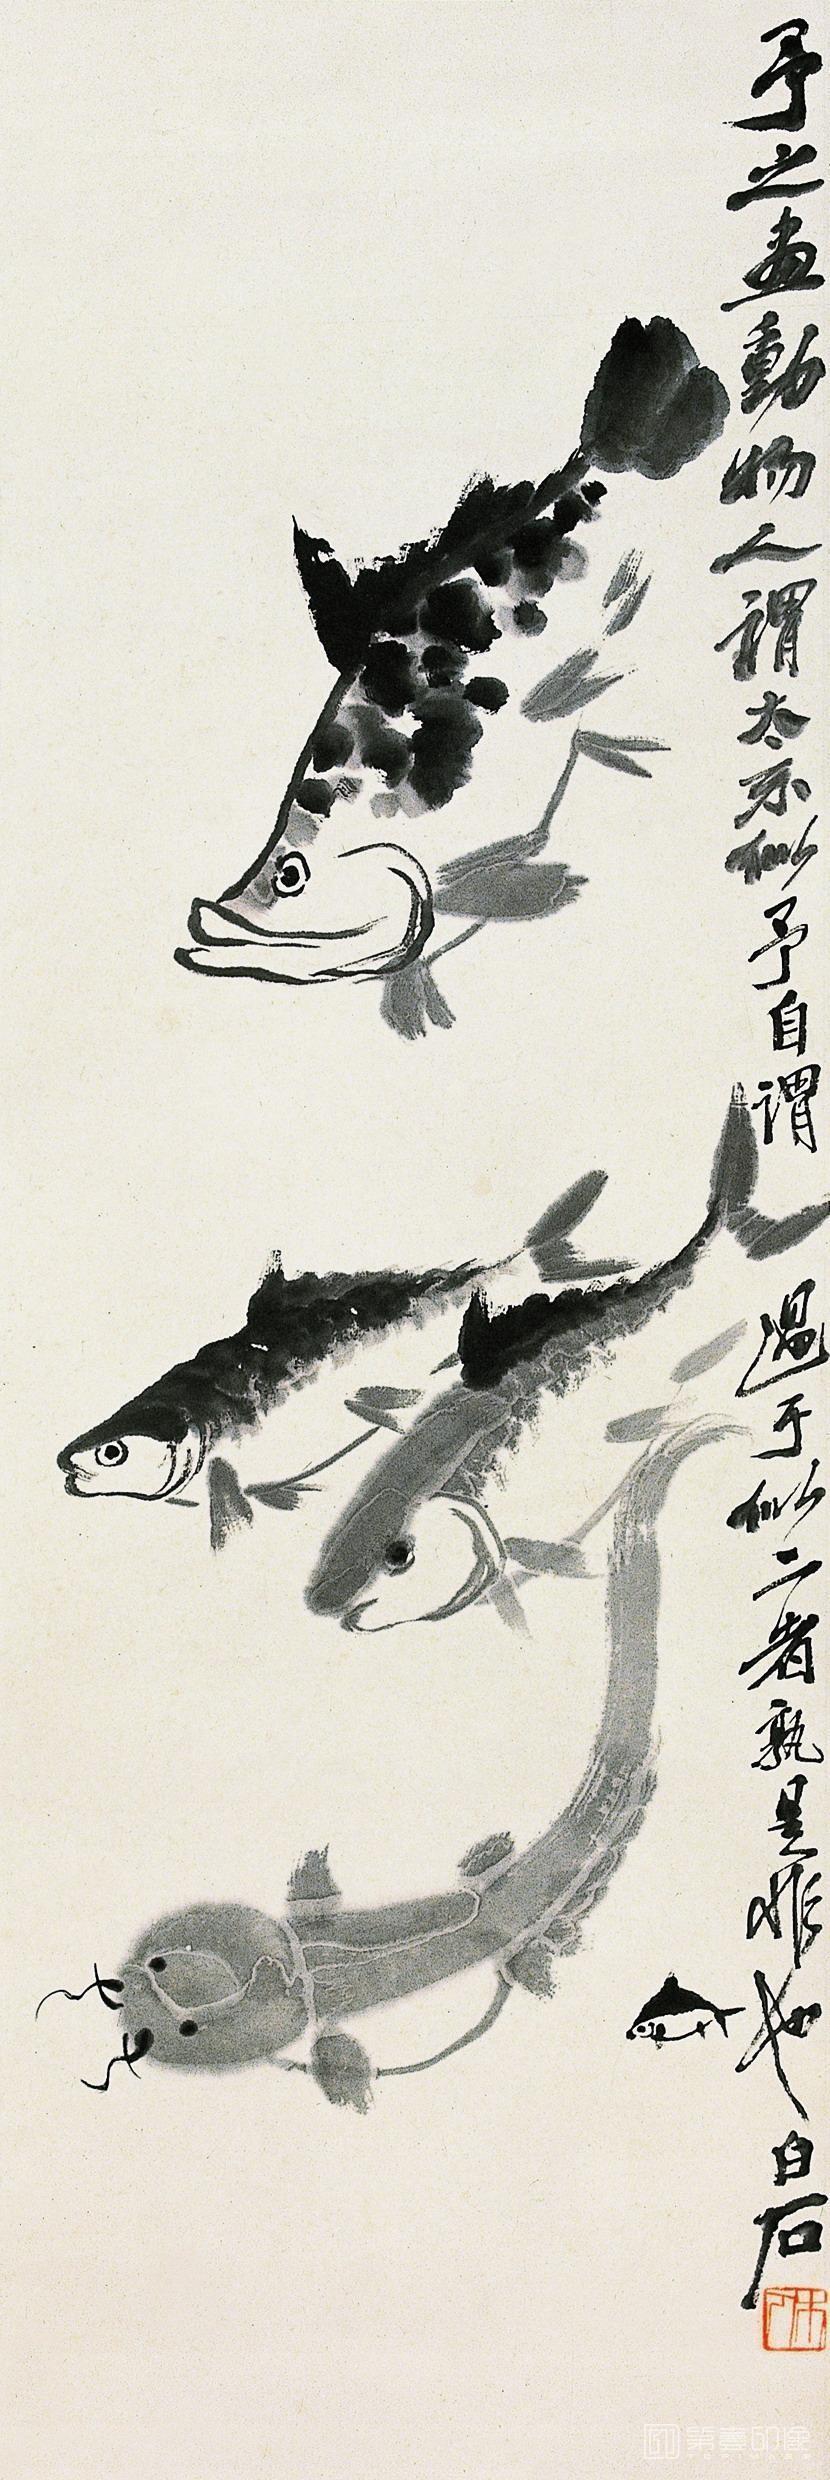 予之畫動物人謂太不似予自謂過于似二者孰是非也白石
木人
第壹印像
TOPIMAGE